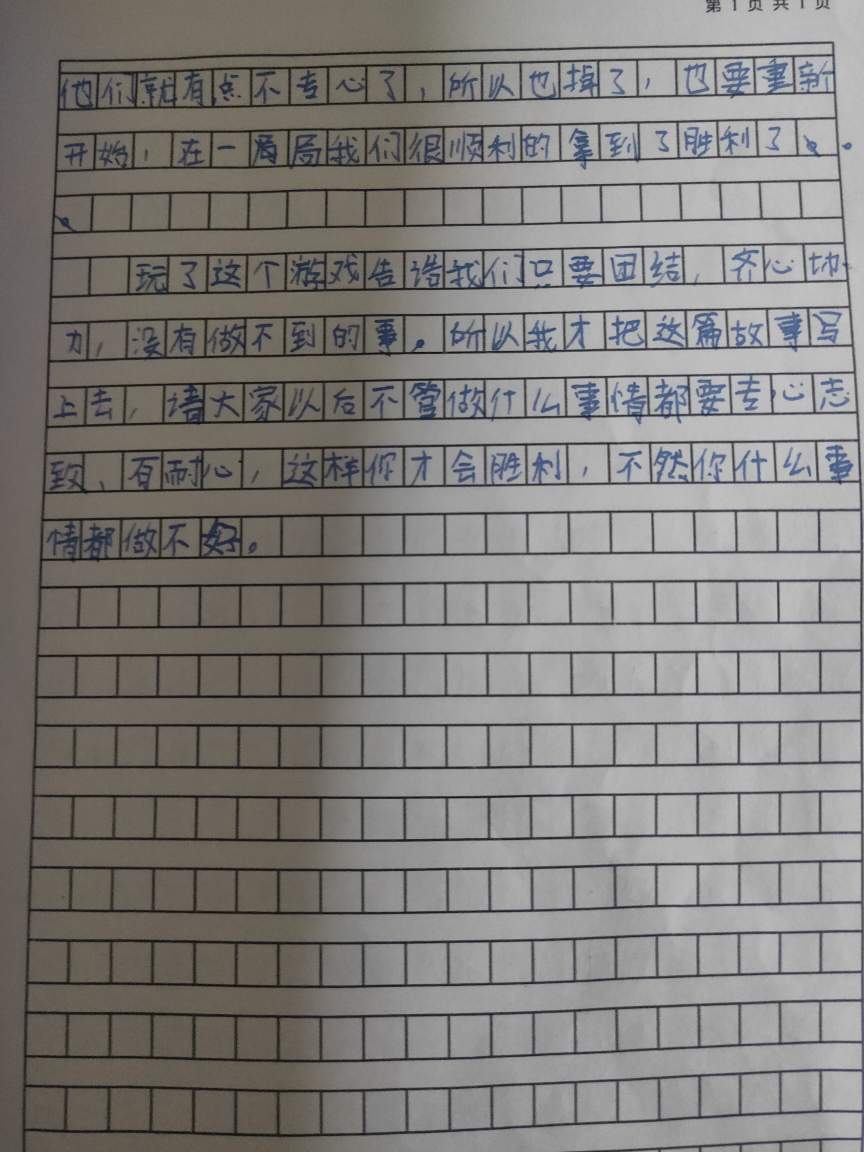 第 1 页 共 1 页
他们就有点不专心了，所以也掉了，也要重新
开始，在一局局我们很顺利的拿到了胜利了。
玩了这个游戏告诰我们只要团结，齐心协
力，没有做不到的事。所以我才把这篇故事写
上去，请大家以后不管做什么事情都要专心志
致、有耐心，这样你才会胜利，不然你什么事
情都做不好。